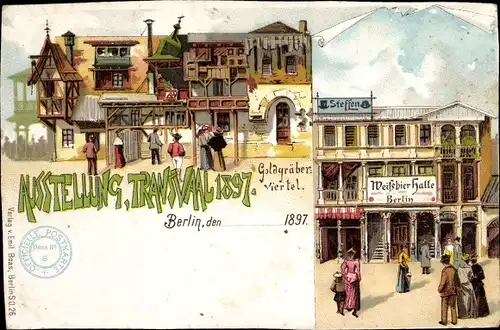 Steffen
Weißbier Halle
Berlin
AUSSTELLUNG, TRANSVAAL 1897.
Goldgräber-
viertel.
Berlin, den 1897.
OFFICIELLE POSTKARTE
8
Verlag v. Emil Boas, Berlin S.O. 26.